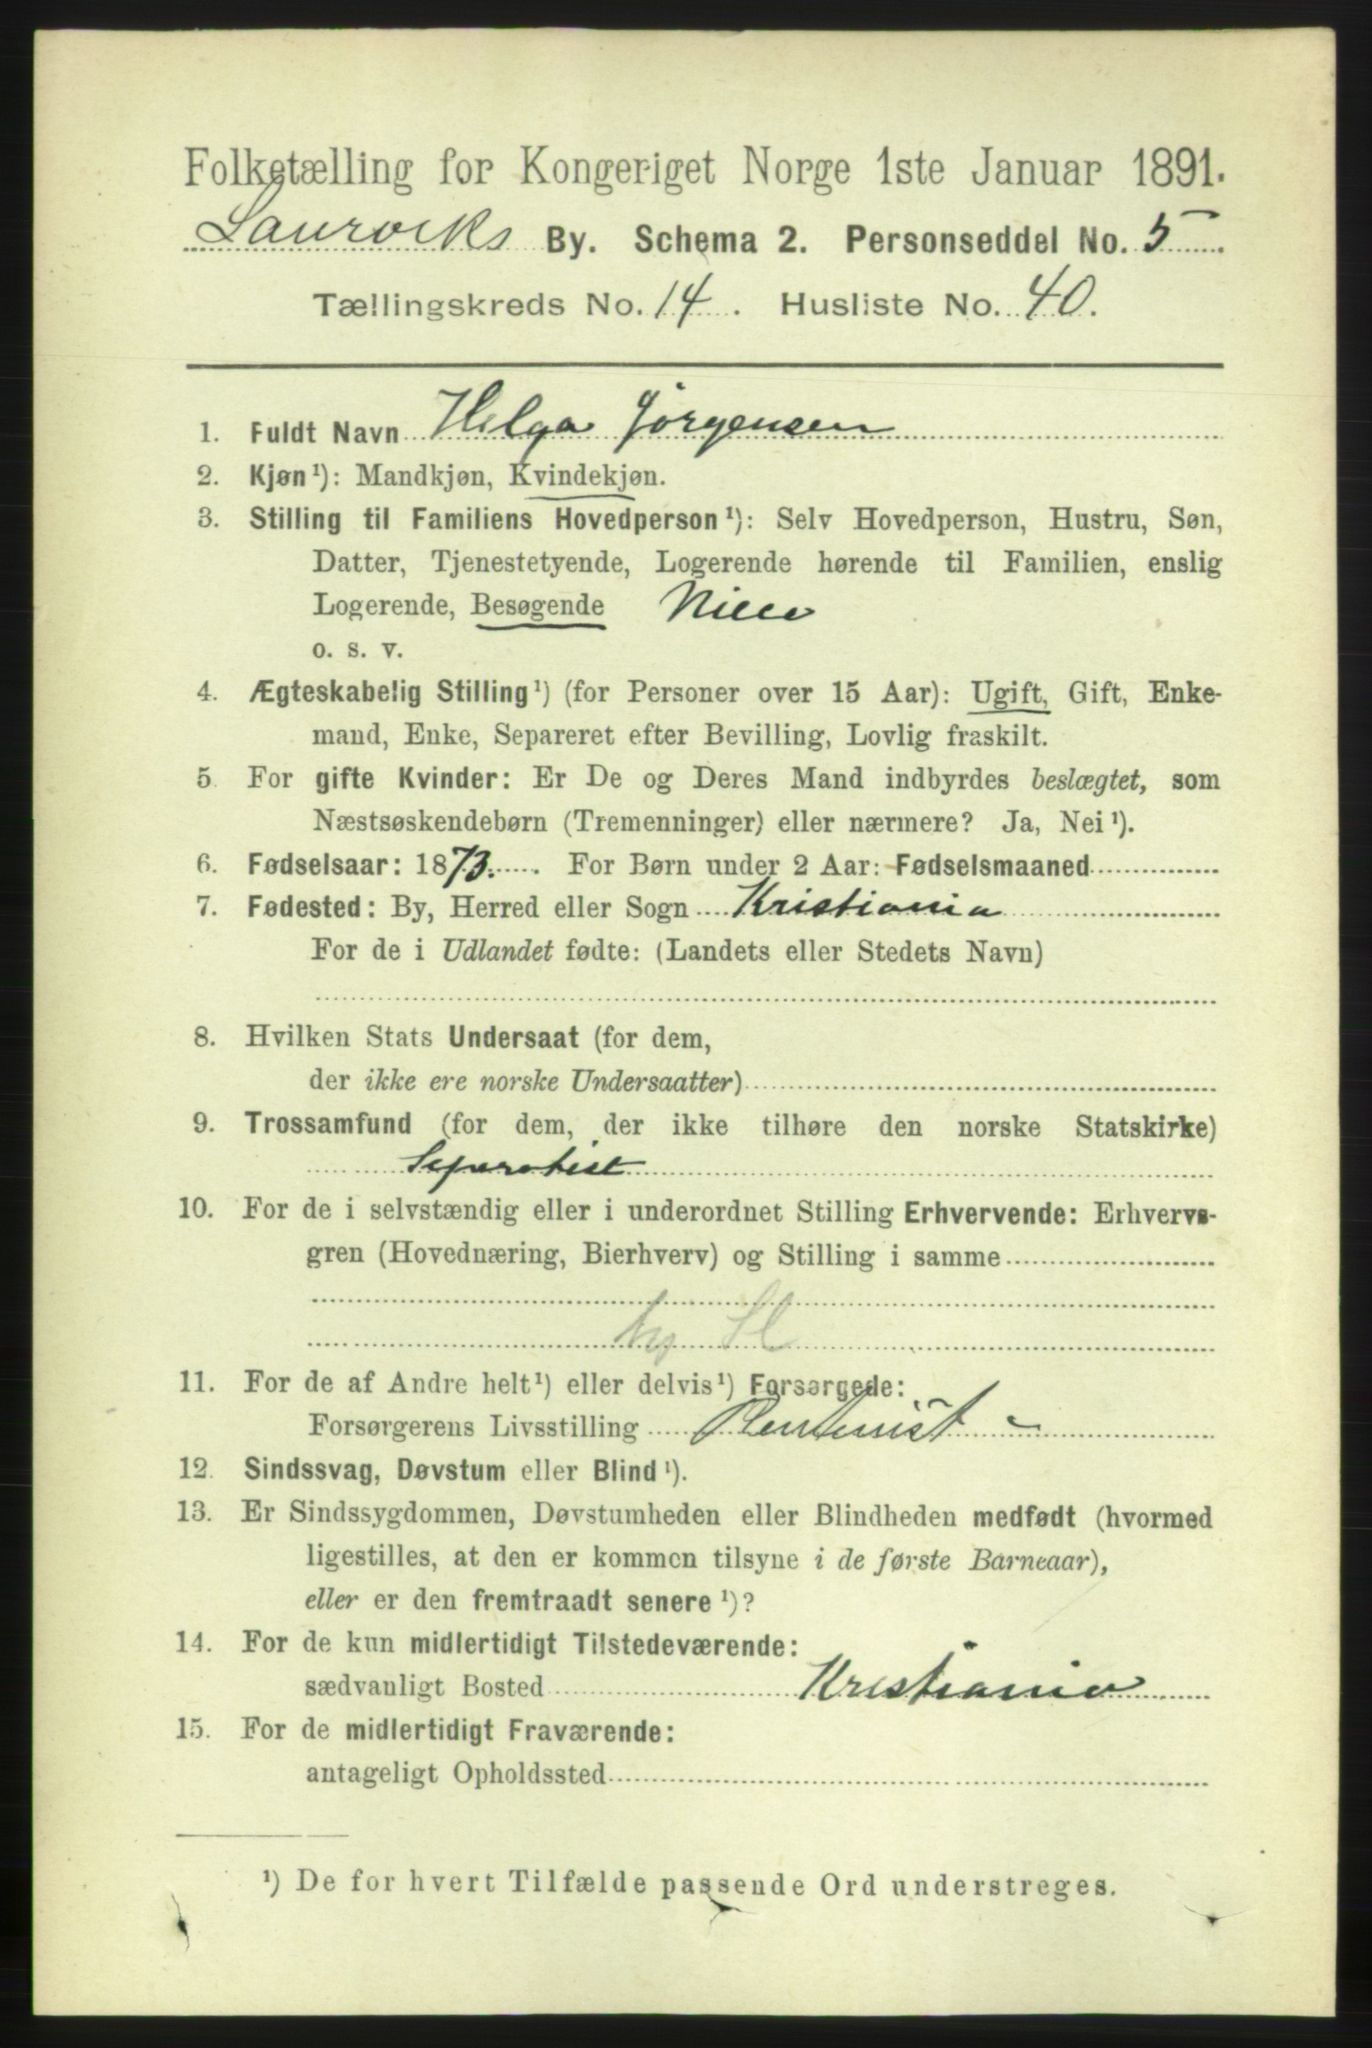 Folketælling for Kongeriget Norge 1ste Januar 1891.
Laurviks By. Schema 2. Personseddel No. 5
Tællingskreds No. 14. Husliste No. 40.
1. Fuldt Navn Helga Jørgensen
2. Kjøn¹): Mandkjøn, Kvindekjøn.
3. Stilling til Familiens Hovedperson¹): Selv Hovedperson, Hustru, Søn,
Datter, Tjenestetyende, Logerende hørende til Familien, enslig
Logerende, Besøgende Niece
o. s. v.
4. Ægteskabelig Stilling¹) (for Personer over 15 Aar): Ugift, Gift, Enke-
mand, Enke, Separeret efter Bevilling, Lovlig fraskilt.
5. For gifte Kvinder: Er De og Deres Mand indbyrdes beslægtet, som
Næstsøskendebørn (Tremenninger) eller nærmere? Ja, Nei¹).
6. Fødselsaar: 1873. For Børn under 2 Aar: Fødselsmaaned
7. Fødested: By, Herred eller Sogn Kristiania
For de i Udlandet fødte: (Landets eller Stedets Navn)
8. Hvilken Stats Undersaat (for dem,
der ikke ere norske Undersaatter)
9. Trossamfund (for dem, der ikke tilhøre den norske Statskirke)
Separatist
10. For de i selvstændig eller i underordnet Stilling Erhvervende: Erhvervs-
gren (Hovednæring, Bierhverv) og Stilling i samme
11. For de af Andre helt¹) eller delvis¹) Forsørgede:
Forsørgerens Livsstilling Rentenist
12. Sindssvag, Døvstum eller Blind¹).
13. Er Sindssygdommen, Døvstumheden eller Blindheden medfødt (hvormed
ligestilles, at den er kommen tilsyne i de første Barneaar),
eller er den fremtraadt senere¹)?
14. For de kun midlertidigt Tilstedeværende:
sædvanligt Bosted Kristiania
15. For de midlertidigt Fraværende:
antageligt Opholdssted
¹) De for hvert Tilfælde passende Ord understreges.